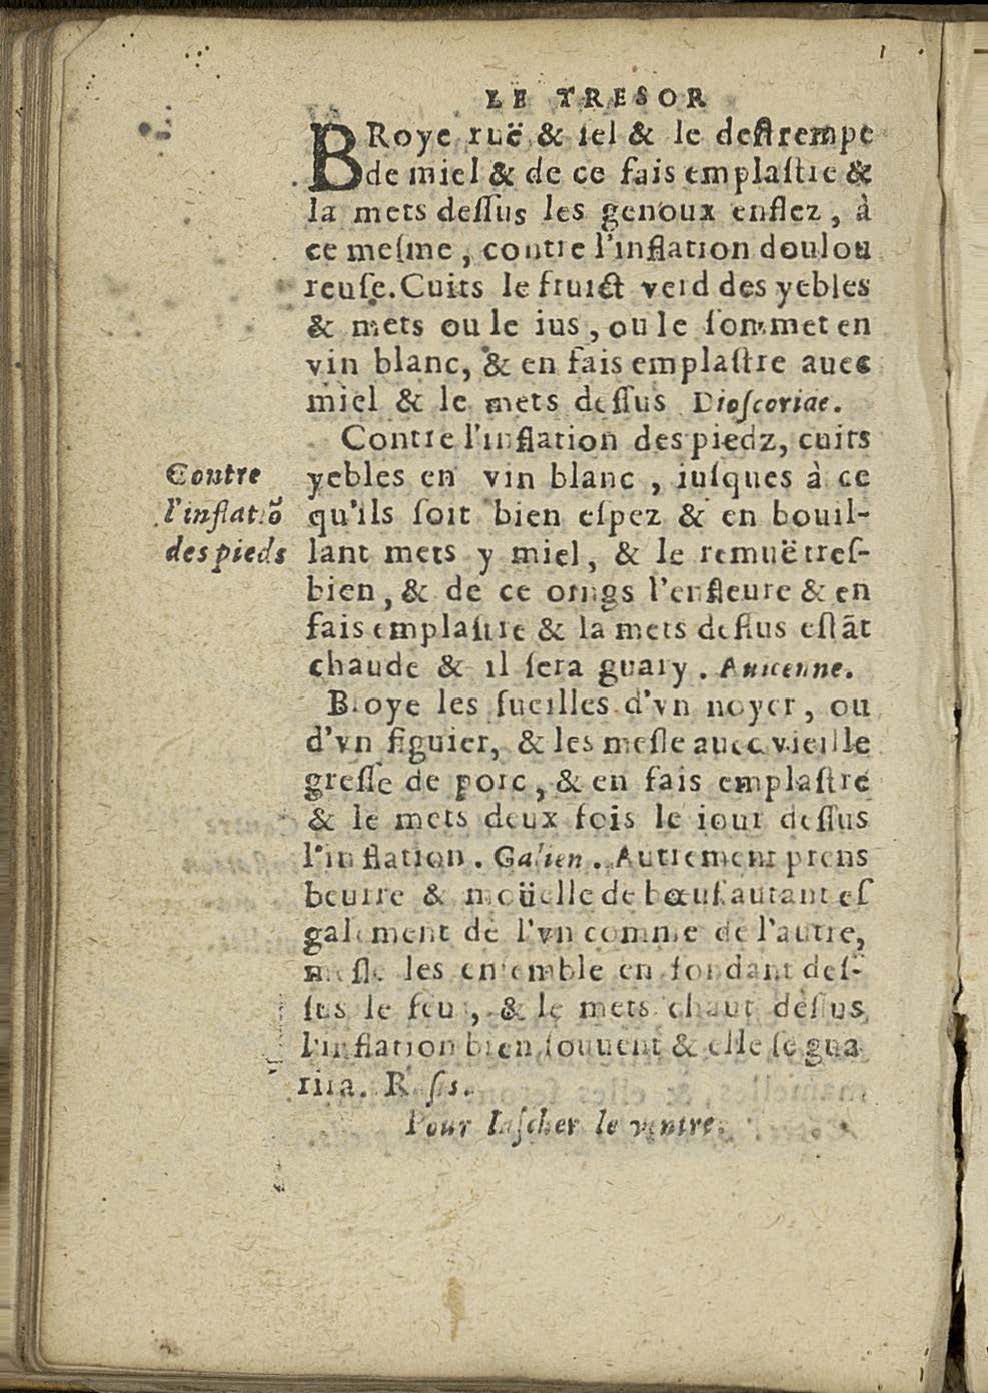 LE TRESOR
BRoye ruë & sel & le destrempe
de miel & de ce fais emplastre &
la mets dessus les genoux enflez, à
ce mesme, contre l'inflation doulou
reuse. Cuits le fruict verd des yebles
& mets ou le ius, ou le sommet en
vin blanc, & en fais emplastre auec
miel & le mets dessus Dioscoriae.
Contre l'inflation des piedz, cuits
Contre
l'inflatiõ
des pieds
yebles en vin blanc, iusques à ce
qu'ils soit bien espez & en bouil-
lant mets y miel, & le remuë tres-
bien, & de ce oings l'enfleure & en
fais emplastre & la mets dessus estãt
chaude & il sera guary. Auicenne.
Broye les fueilles d'vn noyer, ou
d'vn figuier, & les mesle auec vieille
gresse de porc, & en fais emplastre
& le mets deux fois le iour dessus
l'inflation. Galien. Autrement prens
beurre & moüelle de bœuf autant es
galement de l'vn comme de l'autre,
mesle les ensemble en fondant des-
sus le feu, & le mets chaut dessus
l'inflation bien souuent & elle se gua
rira.
Pour lascher le ventre.